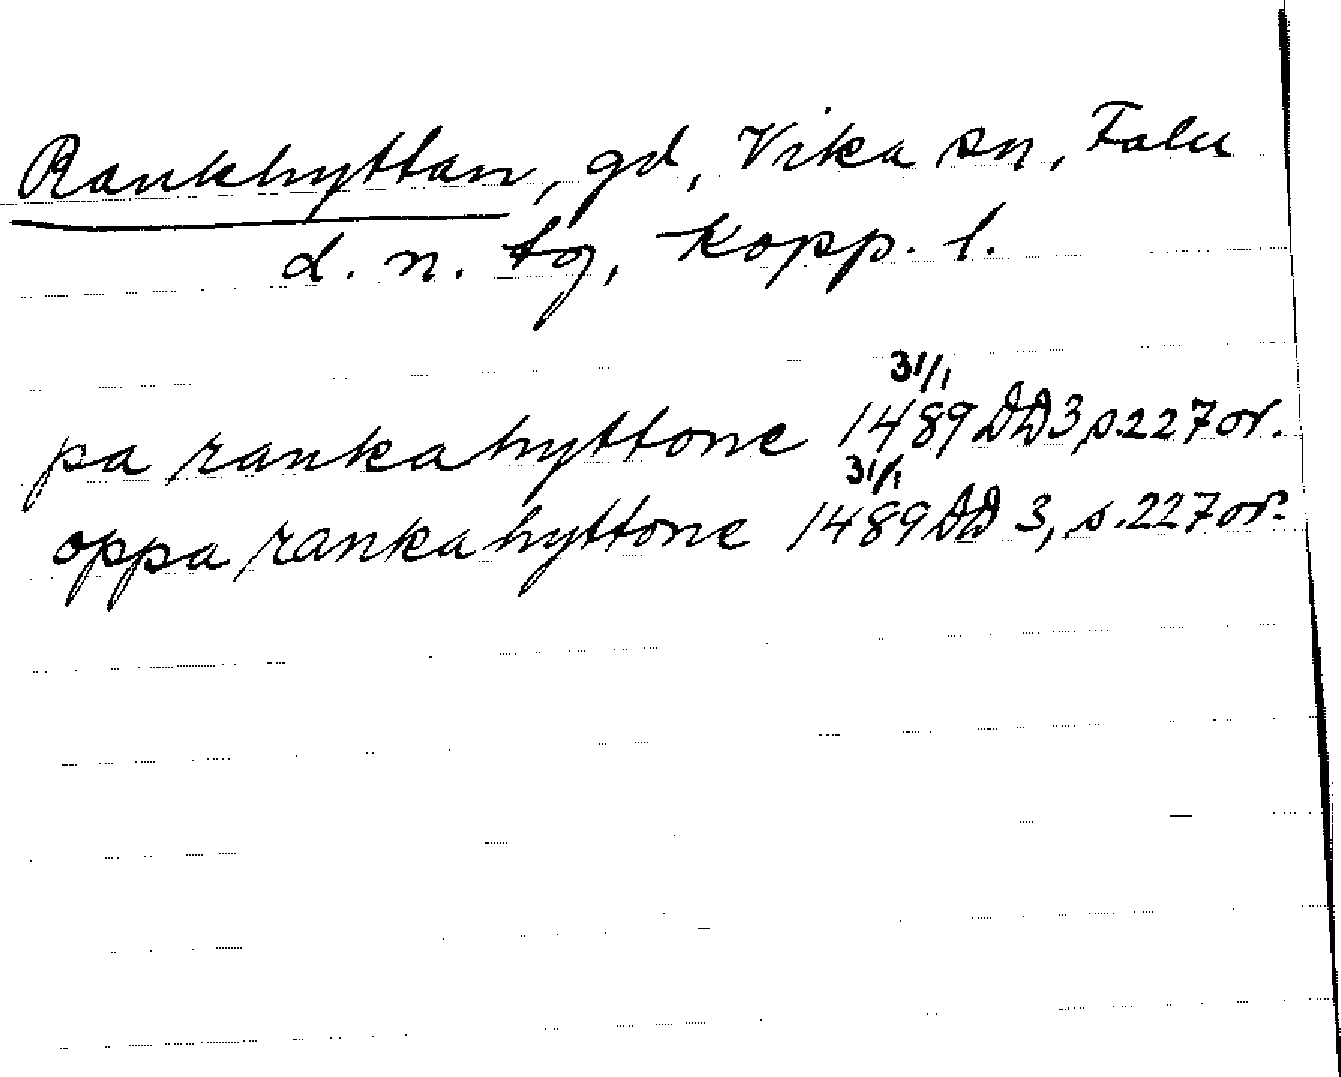 Rankhyttan, gd, Vika sn, Falu
d. n. tg, Kopp. l.
pa rankahyttone 31/1 1489 DD 3 s. 227 or.
oppa rankahyttone 31/1 1489 DD 3, s. 227 or.